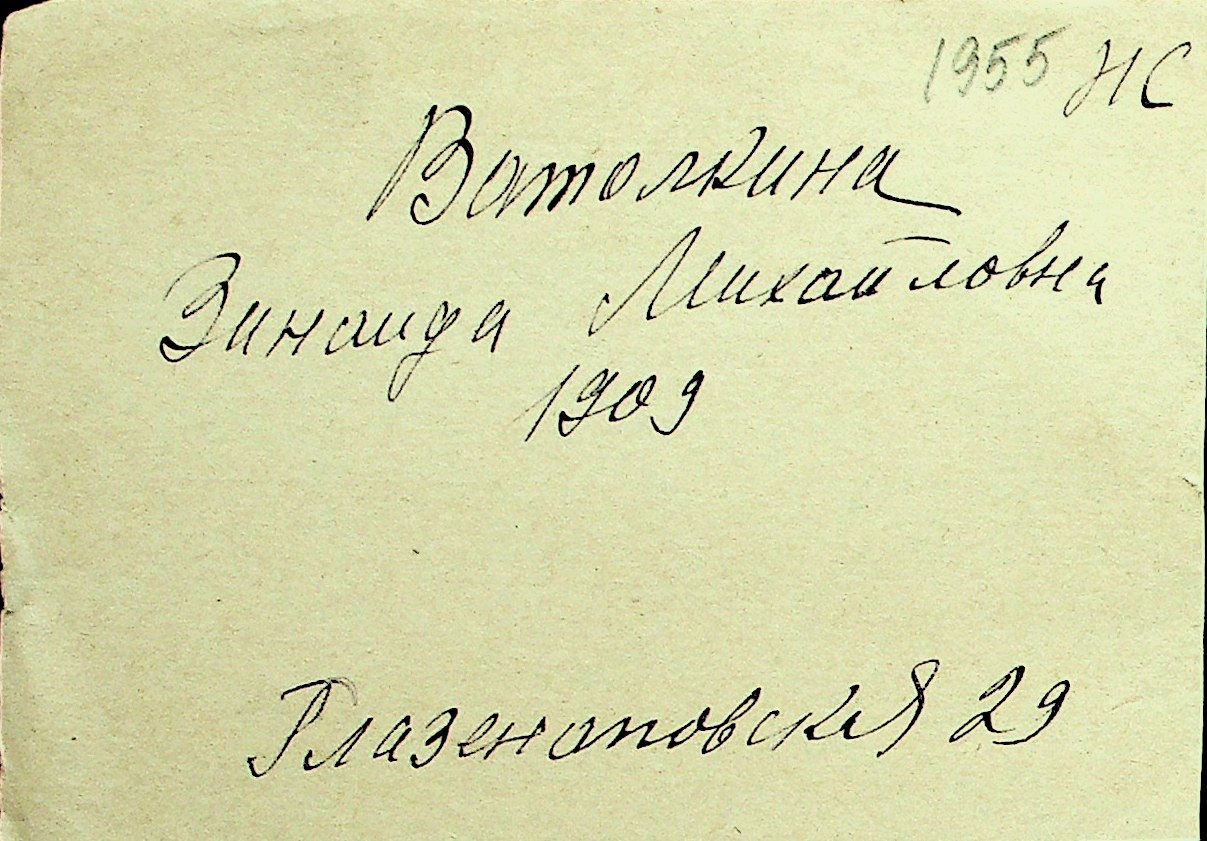 1955 НС
Ватолкина
Зинаида Михайловна
1909
Глазенаповская 29